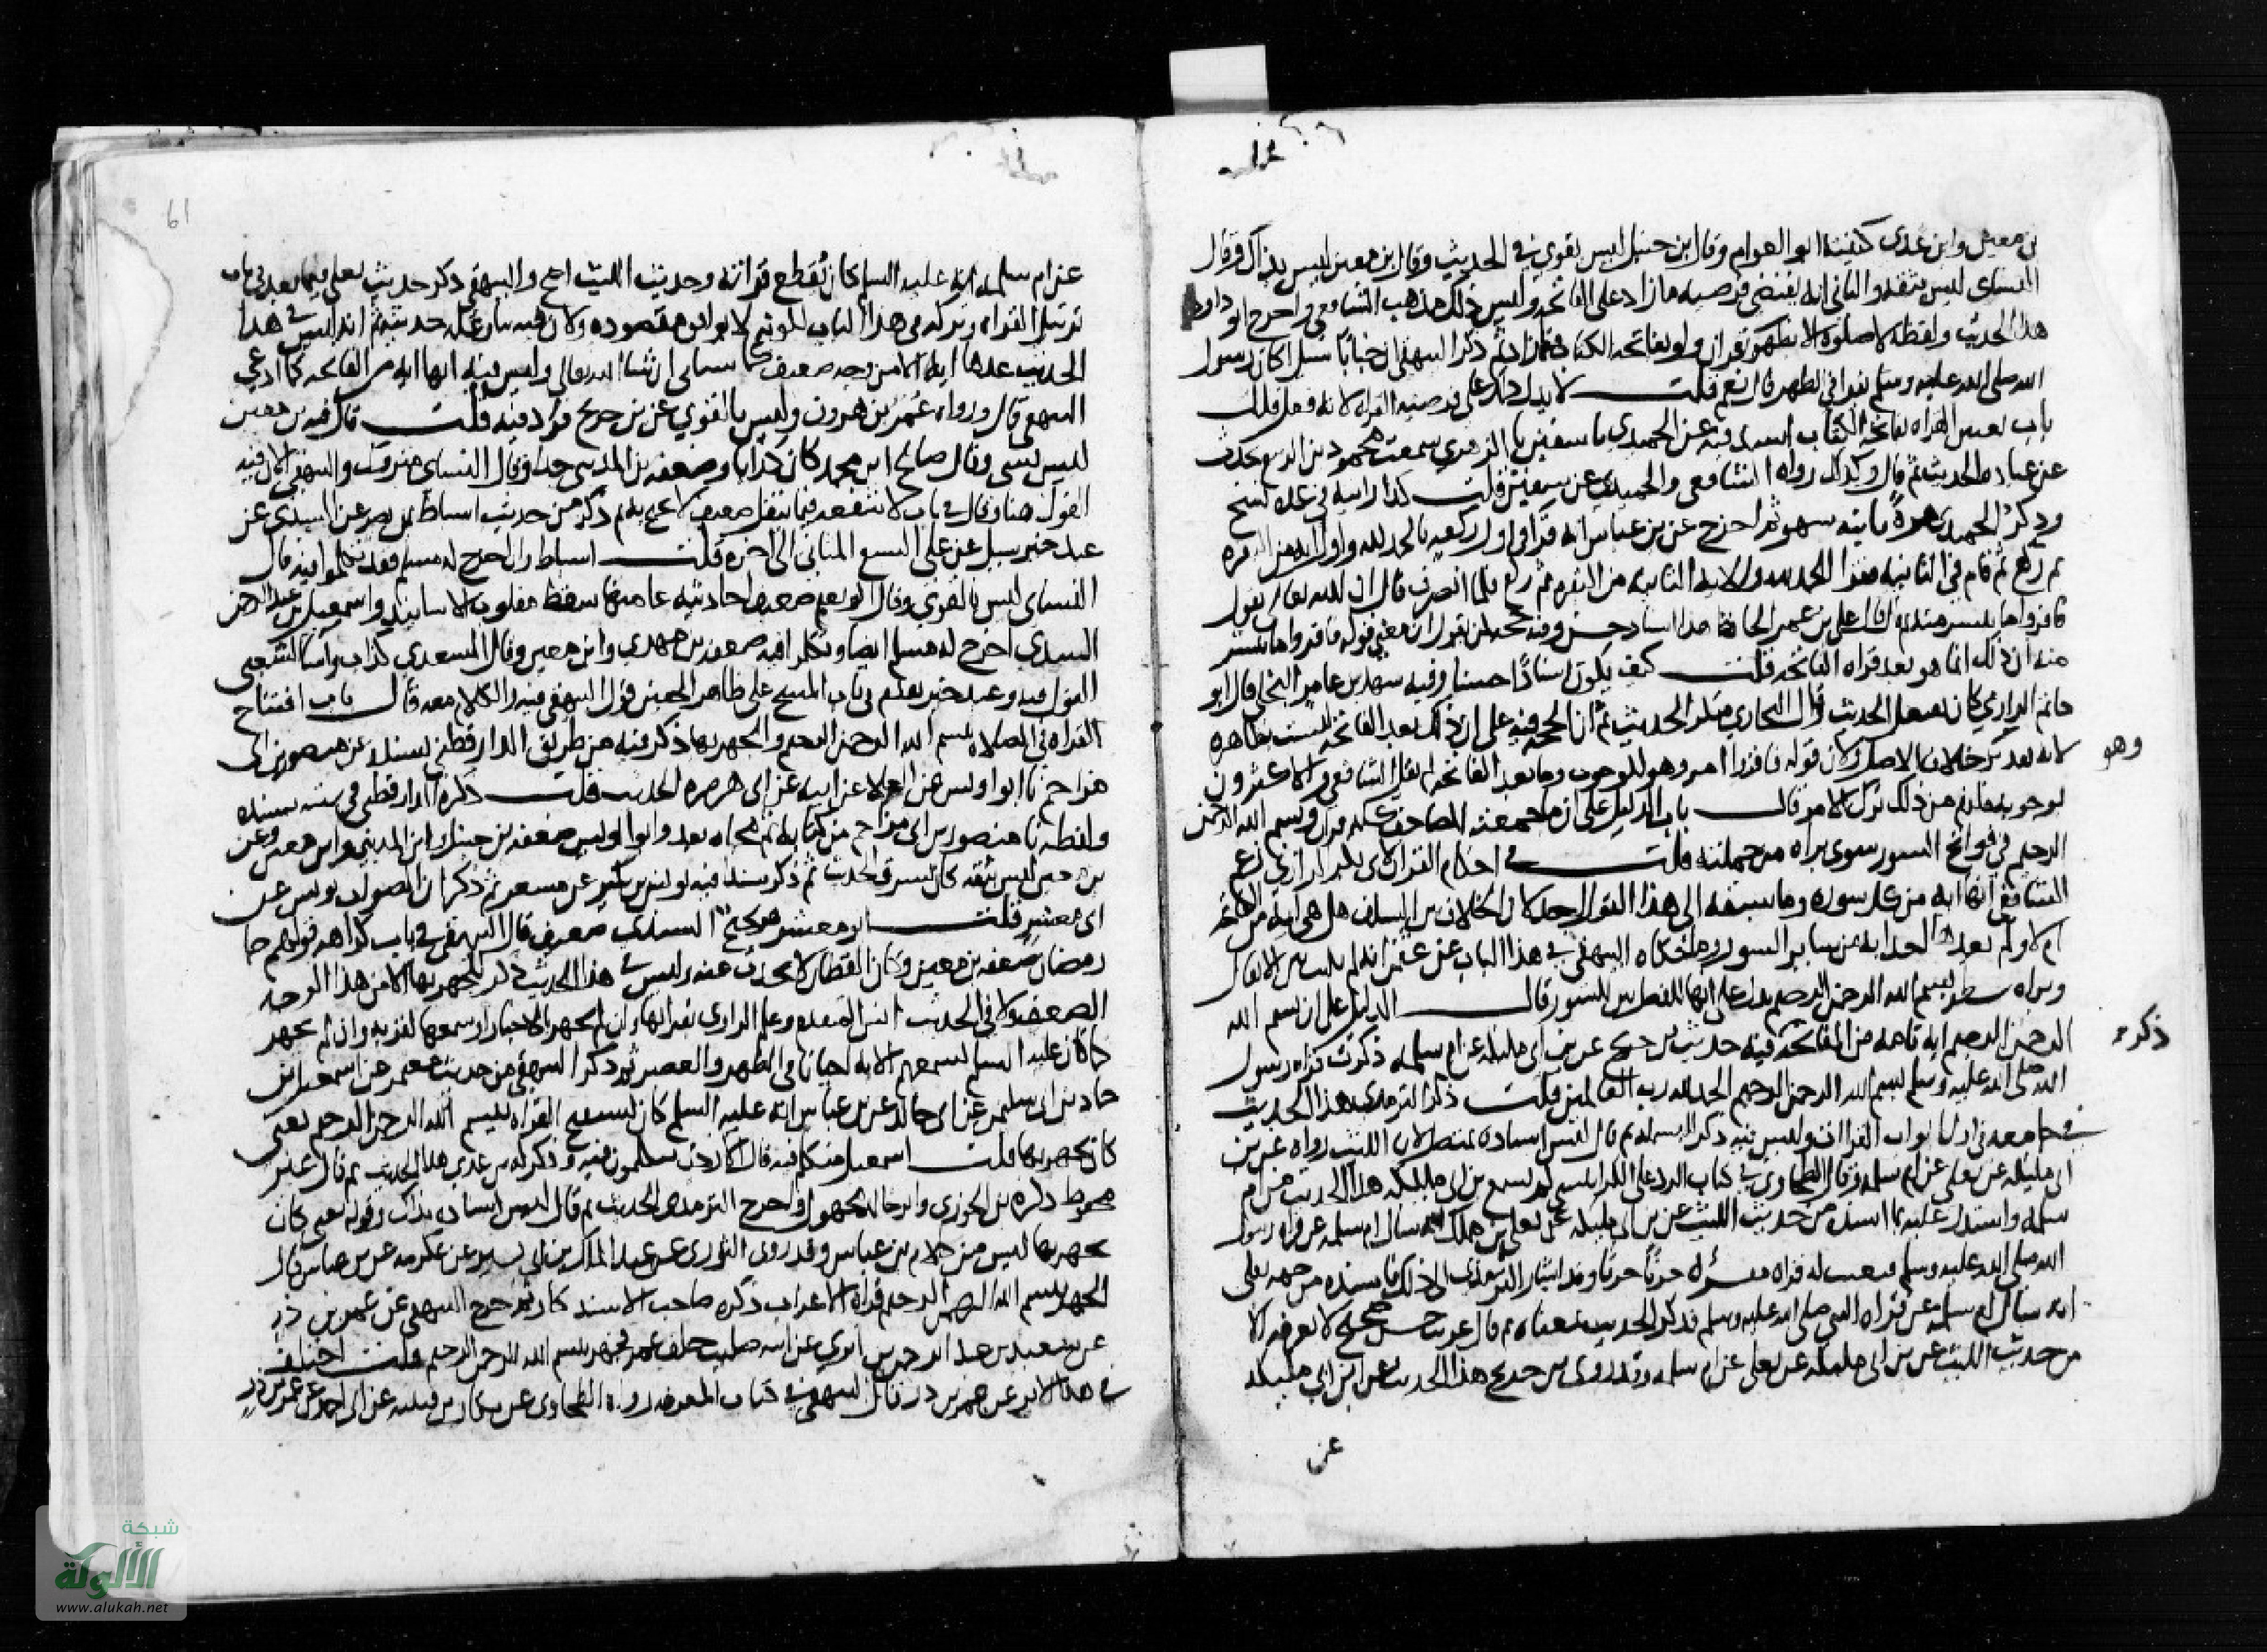 بن معين وابن عدى كنيته ابو العوام وقال ابن حنبل ليس بقوي في الحديث وقال ابن معين ليس بذاك وقال
النساى ليس بثقه والثانى انه يقتضى فرضيه ما زاد على الفاتحه وليس ذلك مذهب الشافعي واخرج ابو داود
هذا الحديث ولفظه لا صلوة الا بقران ولو بفاتحه الكتاب فما زاد ثم ذكر البيهقى ان خبابا سئل اكان رسول
الله صلى الله عليه وسلم يقرا في الظهر قال نعم قلت لا يدل ذلك على فرضيه القراه لانه فعل قال
باب تعيين القراه بفاتحه الكتاب اسند فيه عن الحميدي نا سفين نا الزهري سمعت محمود بن الربيع يحدث
عن عباده الحديث ثم قال وكذلك رواه الشافعى والحميدي عن سفين قلت كذا رايته في عده نسخ
وذكر الحميدي مرة ثانيه سهو ثم اخرج عن بن عباس انه قرا في اول ركعه بالحمد لله واول ايه من البقره
ثم ركع ثم قام في الثانيه فقرا الحمد لله والايه الثانيه من البقره ثم ركع فلما انصرف قال ان الله تعالى يقول
فاقرواما تيسر منه قال على بن عمر الحافظ هذا اسناد حسن وفيه حجه لمن يقول ان معنى قوله فاقروا ما تيسر
منه ان ذلك انما هو بعد قراه الفاتحه قلت كيف يكون اسنادا حسنا وفيه سهل بن عامر البجلى قال ابو
حاتم الرازي كان يفتعل الحديث وقال البخاري منكر الحديث ثم ان الحجه فيه على ان ذلك بعد الفاتحه ليست بظاهره
لانه بعد خلاف الاصل لان قوله فاقروا امر وهو للوجوب وما بعد الفاتحه لم يقل الشافعي والاكثرون
وهو
بوجوبه فلزم من ذلك ترك الامر قال باب الدليل على ان ما جمعته المصاحف كله قران وبسم الله الرحمن
الرحيم في فواتح السور سوى براه من جملته قلت في احكام القران لابى بكر الرازي زعم
الشافعى انها ايه من كل سوره وما سبقه الى هذا القول احد لان الخلاف بين السلف هل هى ايه من الفاتحه
ام لا ولم يعدها احد ايه من ساير السور وما حكاه البيهقى في هذا الباب عن عثمن انه لم يكتب بين الانفال
وبراه سطر بسم الله الرحمن الرحيم يدل على انها للفصل بين السور قال الدليل على ان بسم الله
الرحمن الرحيم ايه تامه من الفاتحه فيه حديث بن جريج عن بن ابى مليكه عن ام سلمه ذكرت قراه رسول
ذكرت
الله صلى الله عليه وسلم بسم الله الرحمن الرحيم الحمد لله رب العالمين قلت ذكر الترمذي هذا الحديث
في جامعه في اول ابواب القراات وليس فيه ذكر البسمله ثم قال ليس اسناده بمتصل لان الليث رواه عن بن
ابى مليكه عن يعلى عن ام سلمه وقال الطحاوي في كتاب الرد على الكرابيسى لم يسمع بن ابى مليكه هذا الحديث من ام
سلمه واستدل عليه بما اسنده من حديث الليث عن بن ابى مليكه عن يعلى بن مملك انه سال ام سلمه عن قراه رسول
الله صلى الله عليه وسلم فنعتت له قراه مفسره حرفا حرفا وقد اشار الترمذي الى ذلك فاسنده من جهه يعلى
انه سال ام سلمه عن قراه النبي صلى الله عليه وسلم فذكر الحديث بمعناه ثم قال غريب حسن صحيح لا نعرفه الا
من حديث الليث عن بن ابى مليكه عن يعلى عن ام سلمه وقد روى بن جريج هذا الحديث عن ابن ابي مليكه
عن
61
عن ام سلمه انه عليه السلام كان يقطع قراته وحديث الليث اصح والبيهقى ذكر حديث يعلى فيما بعد في باب
ترتيل القراه وتركه في هذا الباب لانه لا يوافق مقصوده ولان فيه بيان عله حديثه ثم انه ليس في هذا
الحديث عدها ايه الا من وجه ضعيف كما سياتى ان شا الله تعالى وليس فيه انها ايه من الفاتحه كما ادعى
البيهقى قال ورواه عمر بن هرون وليس بالقوي عن بن جريج فزاد فيه قلت قال فيه بن معين
ليس بشى وقال صالح ابن محمد كان كذابا وضعفه بن المديني جدا وقال النساى متروك والبيهقى الان فيه
القول هنا وقال في باب لا شفعه فيما ينقل ضعيف لا يحتج به ثم ذكر من حديث اسباط بن نصر عن السدي عن
عبد خير سئل عن على السبع المثانى الى اخره قلت اسباط وان اخرج له مسلم فقد تكلموا فيه قال
النساى ليس بالقوى وقال ابو نعيم ضعيف احاديثه عامتها سقط مقلوب الاسانيد واسمعيل بن عبد الرحمن
السدي اخرج له مسلم ايضا وتكلموا فيه ضعفه بن مهدي وابن معين وقال السعدي كذاب واسا الشعبى
القول فيه وعبد خير تقدم في باب المسح على ظاهر الخفين قول البيهقى فيه والكلام معه قال باب افتتاح
القراه في الصلاه ببسم الله الرحمن الرحيم والجهر بها ذكر فيه من طريق الدارقطني بسنده عن منصور بن ابى
مزاحم نا ابو اويس عن العلا عن ابيه عن ابى هريره الحديث قلت ذكره الدارقطنى في سننه بسنده
ولفظه نا منصور بن ابى مزاحم من كتابه ثم محاه بعد وابو اويس ضعفه بن حنبل وابن المديني وابن معين وعن
بن معين ليس بثقه كان يسرق الحديث ثم ذكر سندا فيه يونس بن بكير عن مسعر ثم ذكر ان الصواب يونس عن
ابى معشر قلت ابو معشر نجيح السندي ضعيف قال البيهقى في باب كراهه قولهم جا
رمضان ضعفه بن معين وكان القطان لا يحدث عنه وليس في هذا الحديث ذكر الجهر بها الا من هذا الوجه
الضعيف ولا في الحديث انس المتقدم وعلم الراوي بقراتها وان لم يجهر الاخبار او سمعها لقربه وان لم يجهر
كما كان عليه السلم يسمعهم الايه احيانا في الظهر والعصر ثم ذكر البيهقى من حديث معتمر عن اسمعيل بن
حماد بن ابى سليمن عن ابى خالد عن بن عباس انه عليه السلم كان يستفتح القراه ببسم الله الرحمن الرحيم يعنى
كان يجهر بها قلت اسمعيل متكلم فيه قال الازدي يتكلمون فيه وذكر له بن عدي هذا الحديث ثم قال غير
محفوظ ذكره بن الجوزي وابو خالد مجهول واخرج الترمذي الحديث ثم قال ليس اسناده بذاك وقوله يعنى كان
يجهر بها ليس من كلام بن عباس وقد روى الثوري عن عبد الملك بن ابى بشير عن عكرمه عن بن عباس قال
الجهر ببسم الله الرحمن الرحيم قراه الاعراب ذكره صاحب الاستذكار ثم خرج البيهقى عن عمر بن ذر
عن سعيد بن عبد الرحمن بن ابزي عن ابيه صليت خلف عمر فجهر ببسم الله الرحمن الرحيم قلت اختلف
في هذا الاثر عن عمر بن ذر قال البيهقى في كتاب المعرفه رواه الطحاوى عن بكار بن قتيبه عن ابى احمد عن عمر بن ذر
شبكة
الألوكة
www.alukah.net